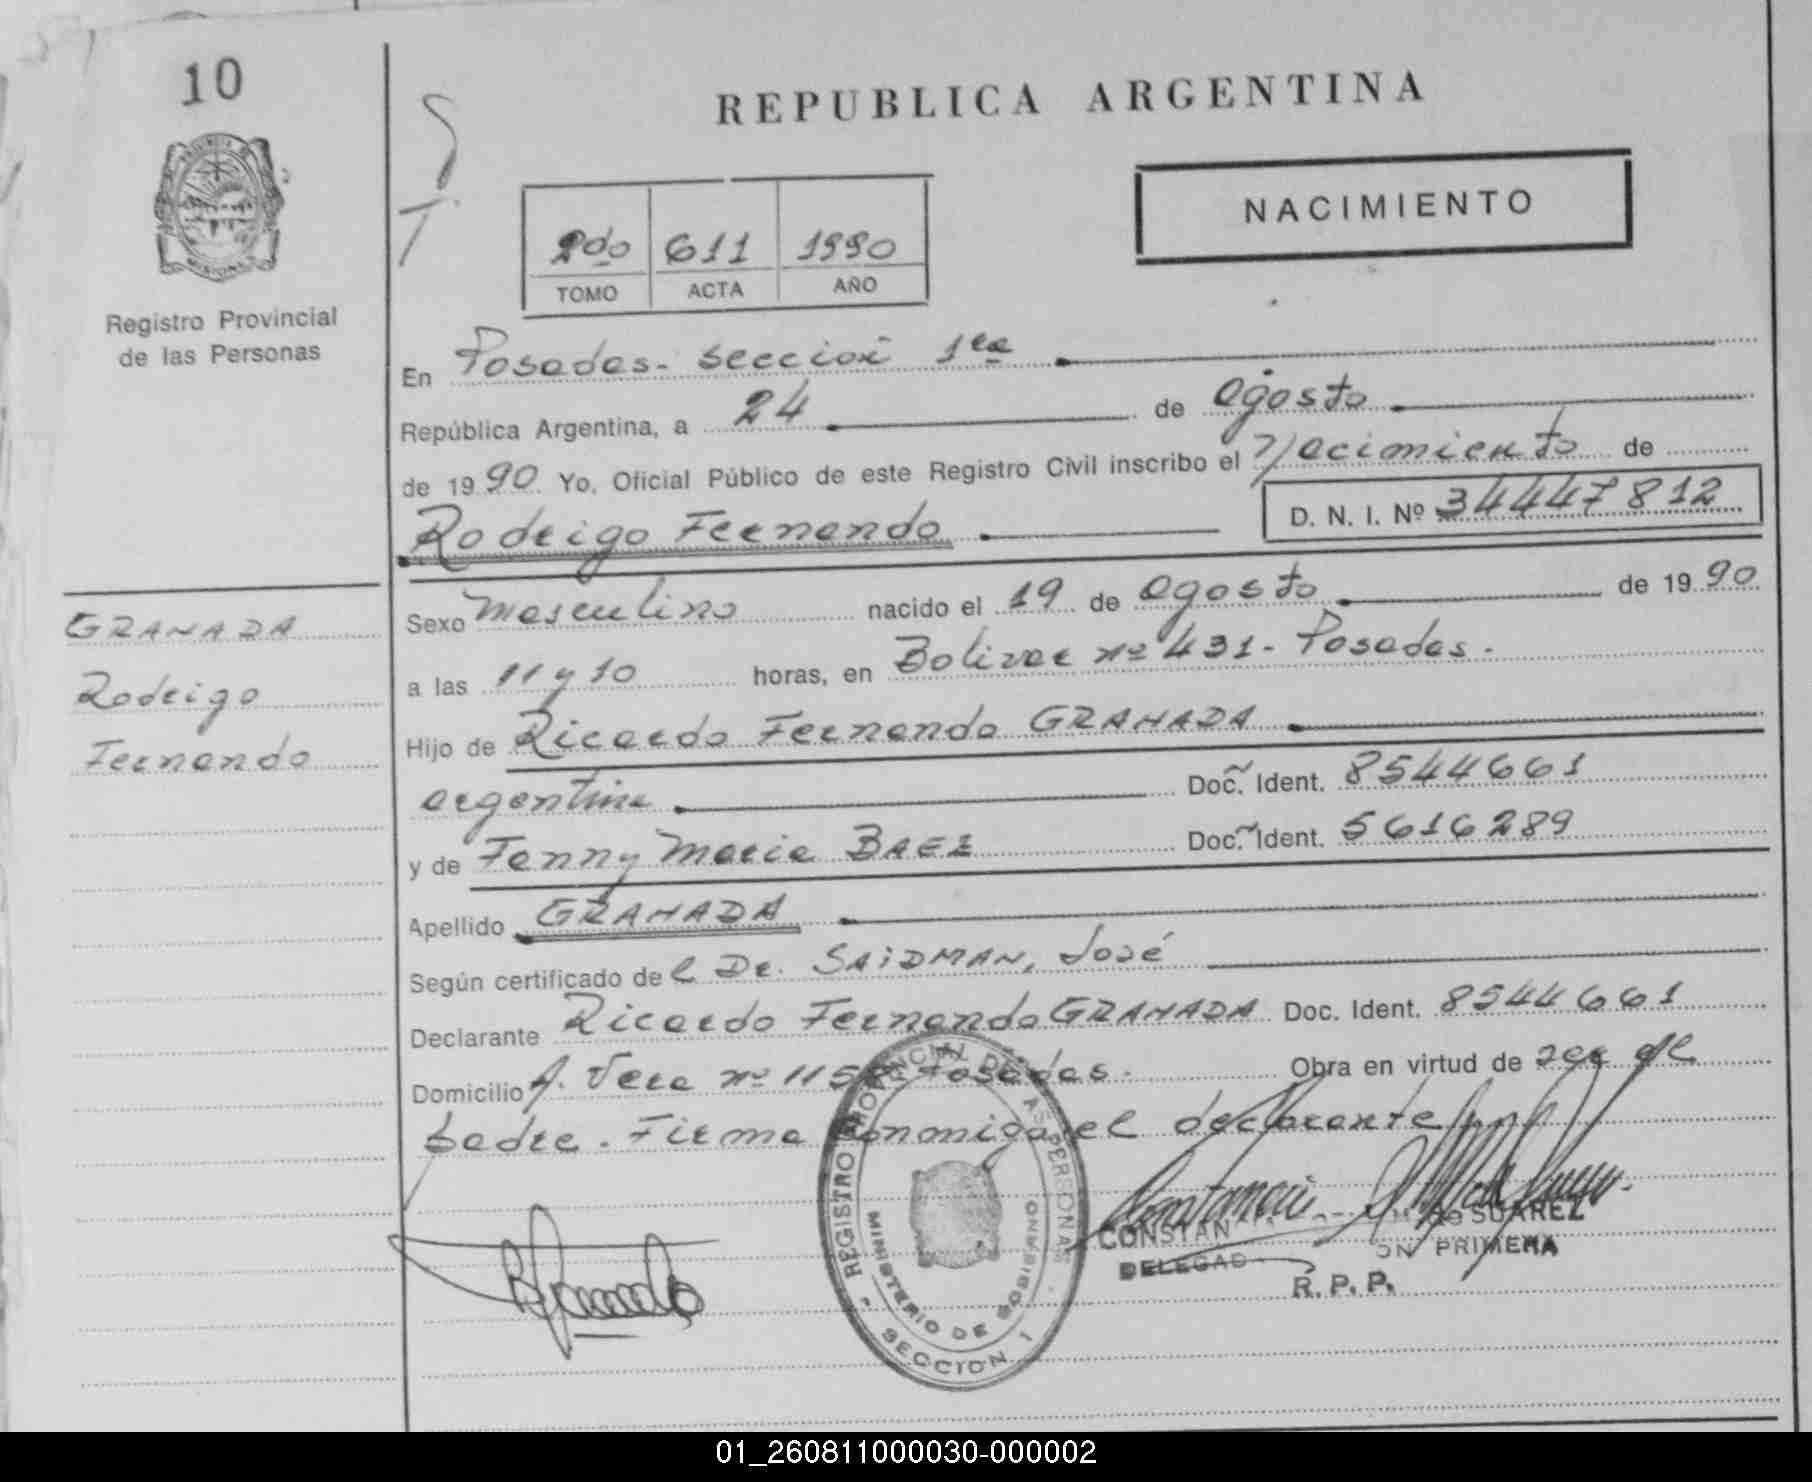 10
REPUBLICA ARGENTINA
NACIMIENTO
2do 611 1990
TOMO ACTA AÑO
Registro Provincial
de las Personas
En Posadas - sección 1ra
República Argentina, a 24 de agosto
de 1990 Yo, Oficial Público de este Registro Civil inscribo el Nacimiento de
Rodrigo Fernando D. N. I. Nº 34447812
GRANADA
Rodrigo
Fernando
Sexo masculino nacido el 19 de agosto de 1990
a las 11 y 10 horas, en Bolivar nº 431 - Posadas.
Hijo de Ricardo Fernando GRANADA
argentina Doc. Ident. 8544661
y de Fanny Maria BAEZ Doc. Ident. 5616289
Apellido GRANADA
Según certificado del Dr. SAIDMAN, José
Declarante Ricardo Fernando GRANADA Doc. Ident. 8544661
Domicilio A. Vera nº Posadas. Obra en virtud de ser el
padre. Firma conmigo el declarante
REGISTRO PROVINCIAL DE LAS PERSONAS
MINISTERIO DE GOBIERNO
SECCION 1
SUAREZ
PRIMERA
R. P. P.
01_260811000030-000002